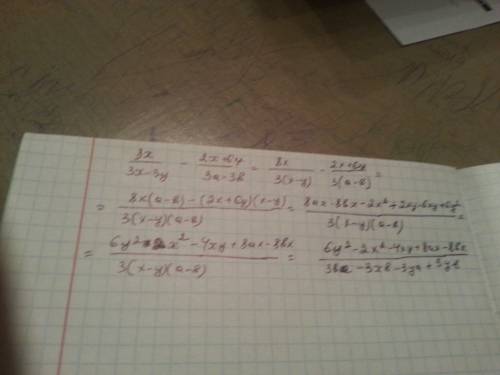 8x/(3x-3y) - (2x+6y)/(3a-3b) = 8x/(3(x-y)) - (2x+6y)/(3(a-b)) =
= (8x(a-b)-(2x+6y)(x-y))/(3(x-y)(a-b)) = (8ax-8bx-2x²+2xy-6xy+6y²)/(3(x-y)(a-b)) =
= (6y²-2x²-4xy+8ax-8bx)/(3(x-y)(a-b)) = (6y²-2x²-4xy+8ax-8bx)/(3xa-3xb-3ya+3yb)